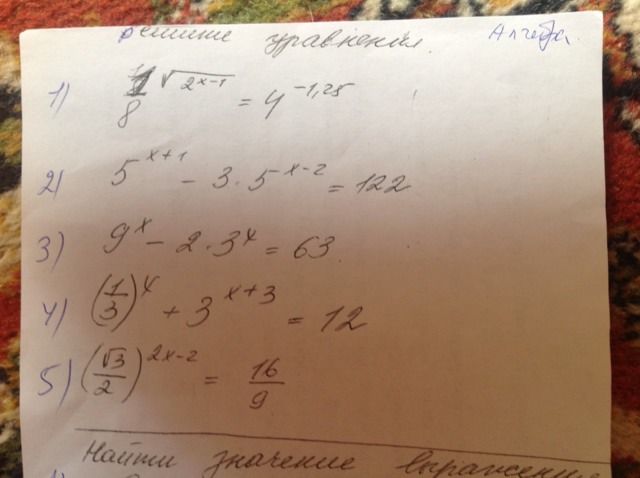 Решите уравнения. Алгебра.
1) 1/8 √(2x-1) = 4^(-1,25)
2) 5^(x+1) - 3·5^(x-2) = 122
3) 9^x - 2·3^x = 63.
4) (1/3)^x + 3^(x+3) = 12
5) (√3/2)^(2x-2) = 16/9
Найти значение выражения
1)